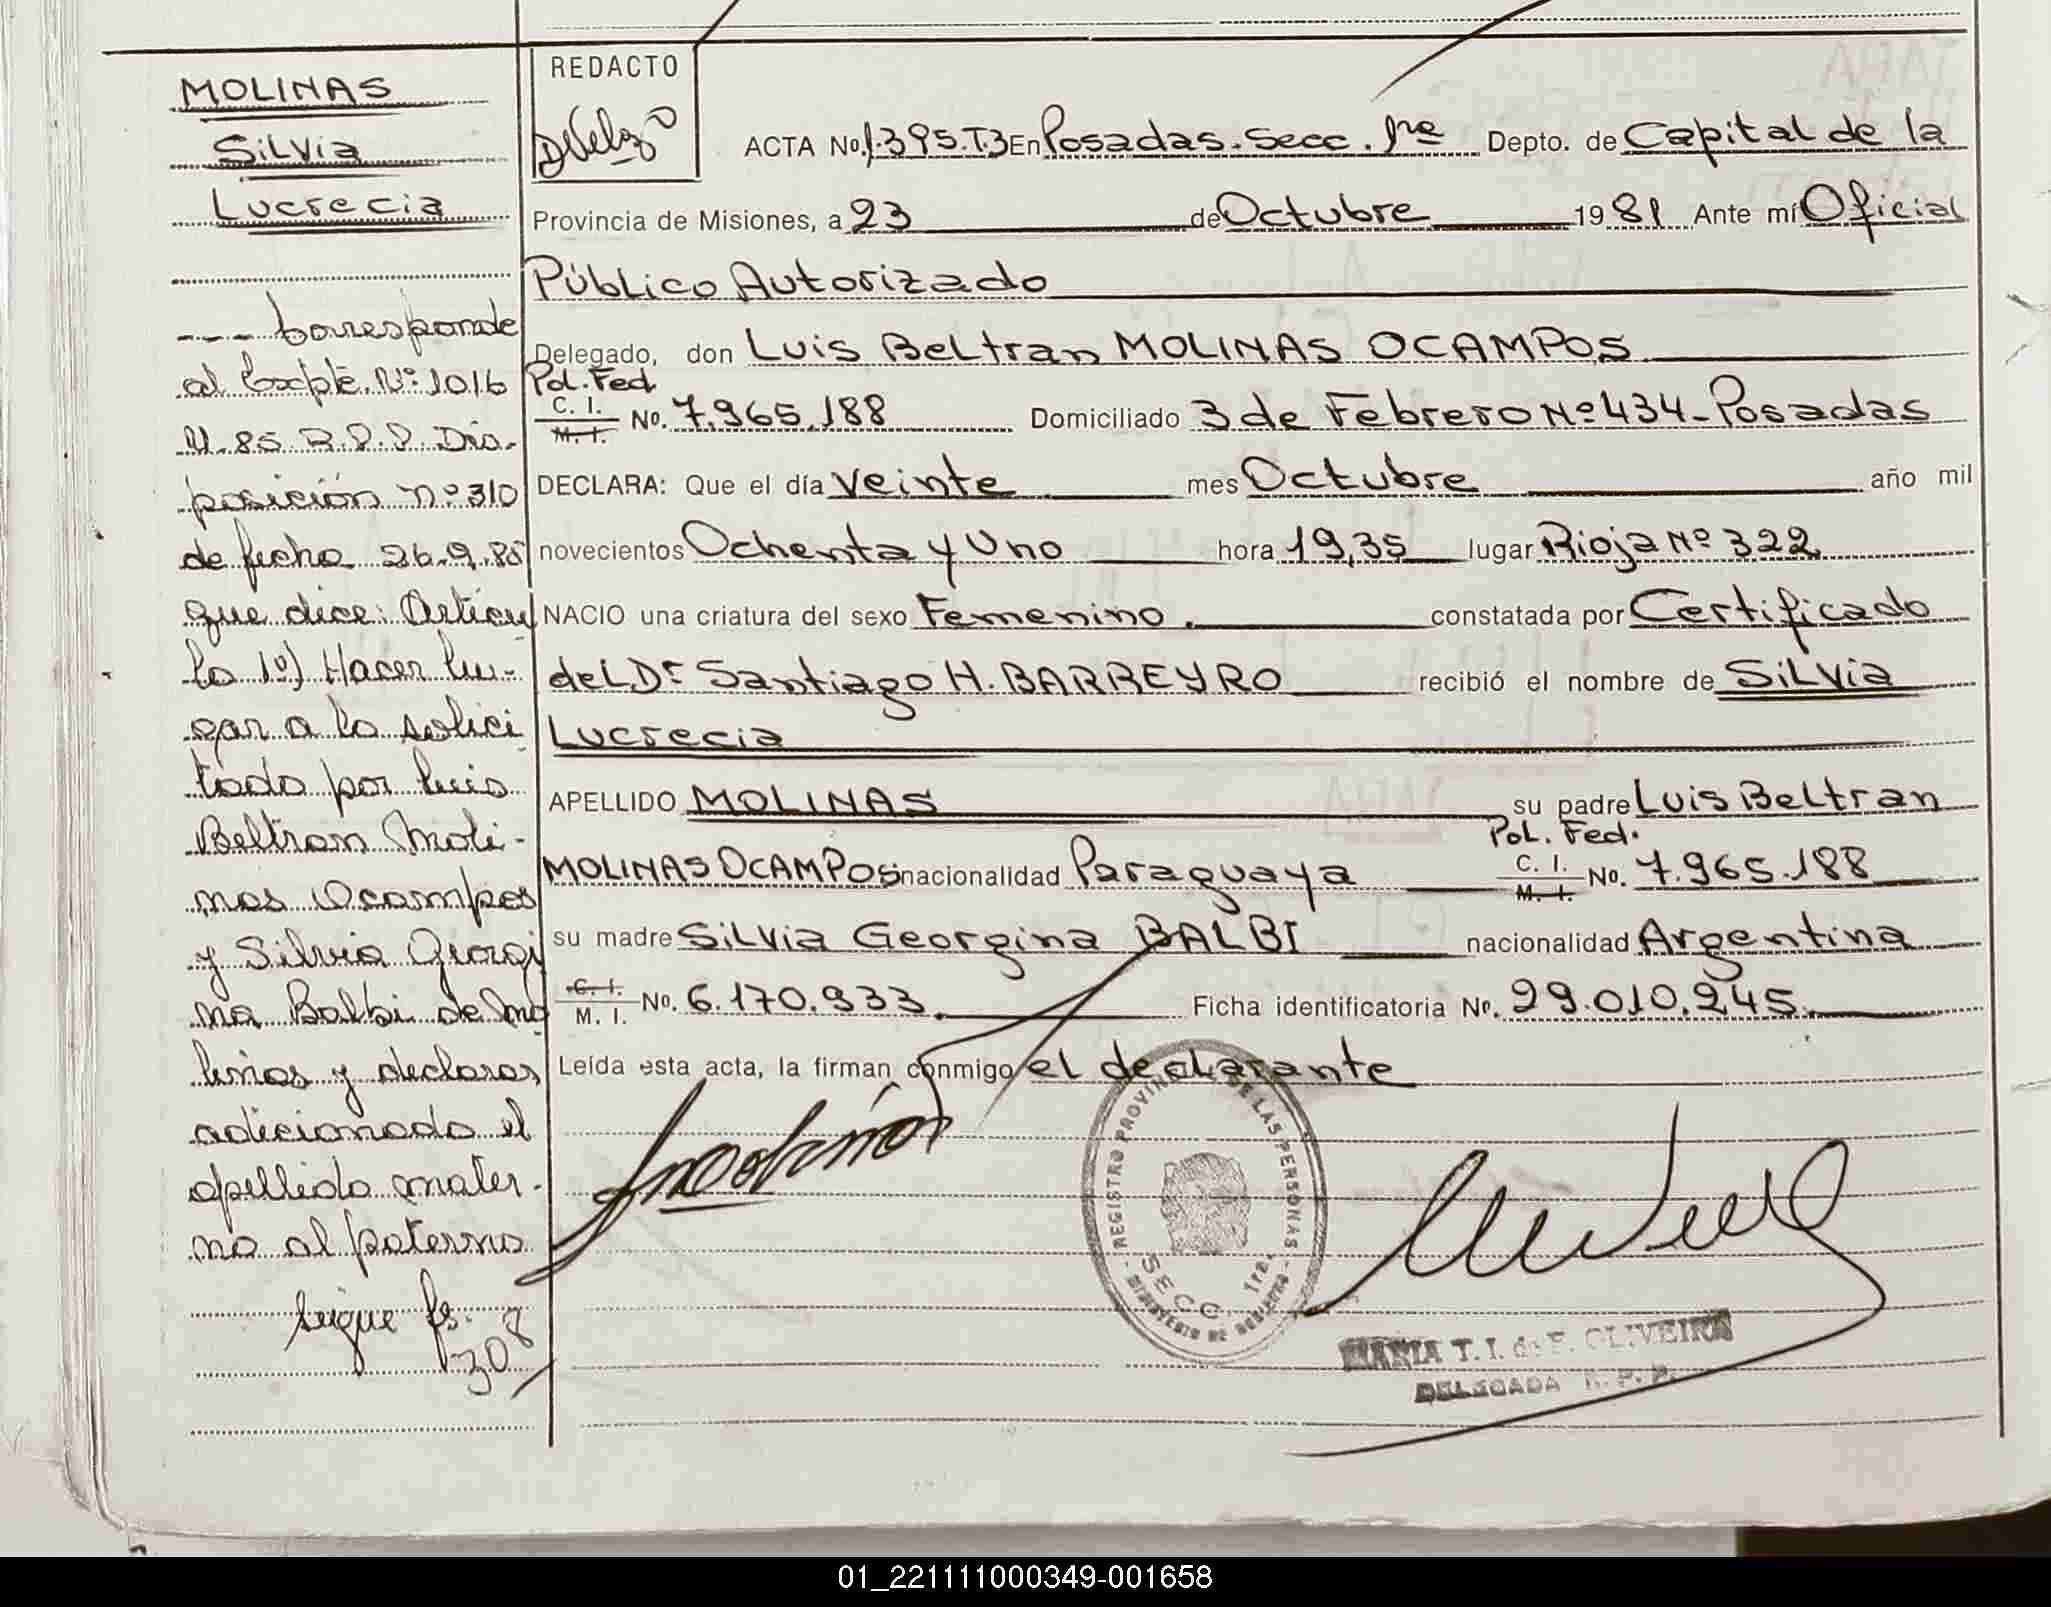 MOLINAS
Silvia
Lucrecia
---- Corresponde
al Expte. Nº: 1016
M. 85 R.P.P. Dis-
posición nº 310
de fecha 26.9.85
que dice: Artícu
lo 1º) Hacer lu-
gar a lo solici
tado por Luis
Beltran Moli-
nas Ocampos
y Silvia Georgi
na Balbi de Mo
linas y declarar
adicionado el
apellido mater-
no al paterno
Sigue fs.
308
REDACTO
ACTA No. 1.395.T.3 En Posadas. Secc. 1ra Depto. de Capital de la
Provincia de Misiones, a 23 de Octubre 1981 Ante mí Oficial
Público Autorizado
Delegado, don Luis Beltran MOLINAS OCAMPOS
Pol. Fed.
C. I.
M. I. No. 7.965.188 Domiciliado 3 de Febrero Nº 434-Posadas
DECLARA: Que el día veinte mes Octubre año mil
novecientos Ochenta y Uno hora 19,35 lugar Rioja Nº 322
NACIO una criatura del sexo Femenino. constatada por Certificado
del Dr Santiago H. BARREYRO recibió el nombre de Silvia
Lucrecia
APELLIDO MOLINAS su padre Luis Beltran
Pol. Fed.
MOLINAS OCAMPOS nacionalidad Paraguaya C. I. M. I. No. 7.965.188
su madre Silvia Georgina BALBI nacionalidad Argentina
C. I. M. I. No. 6.170.933. Ficha identificatoria No. 29.010.245.
Leída esta acta, la firman conmigo el declarante
REGISTRO PROVINCIAL DE LAS PERSONAS
SECC. 1ra.
- MINISTERIO DE GOBIERNO -
MARIA T. I. de F. OLIVEIRA
DELEGADA R. P. P.
01_221111000349-001658